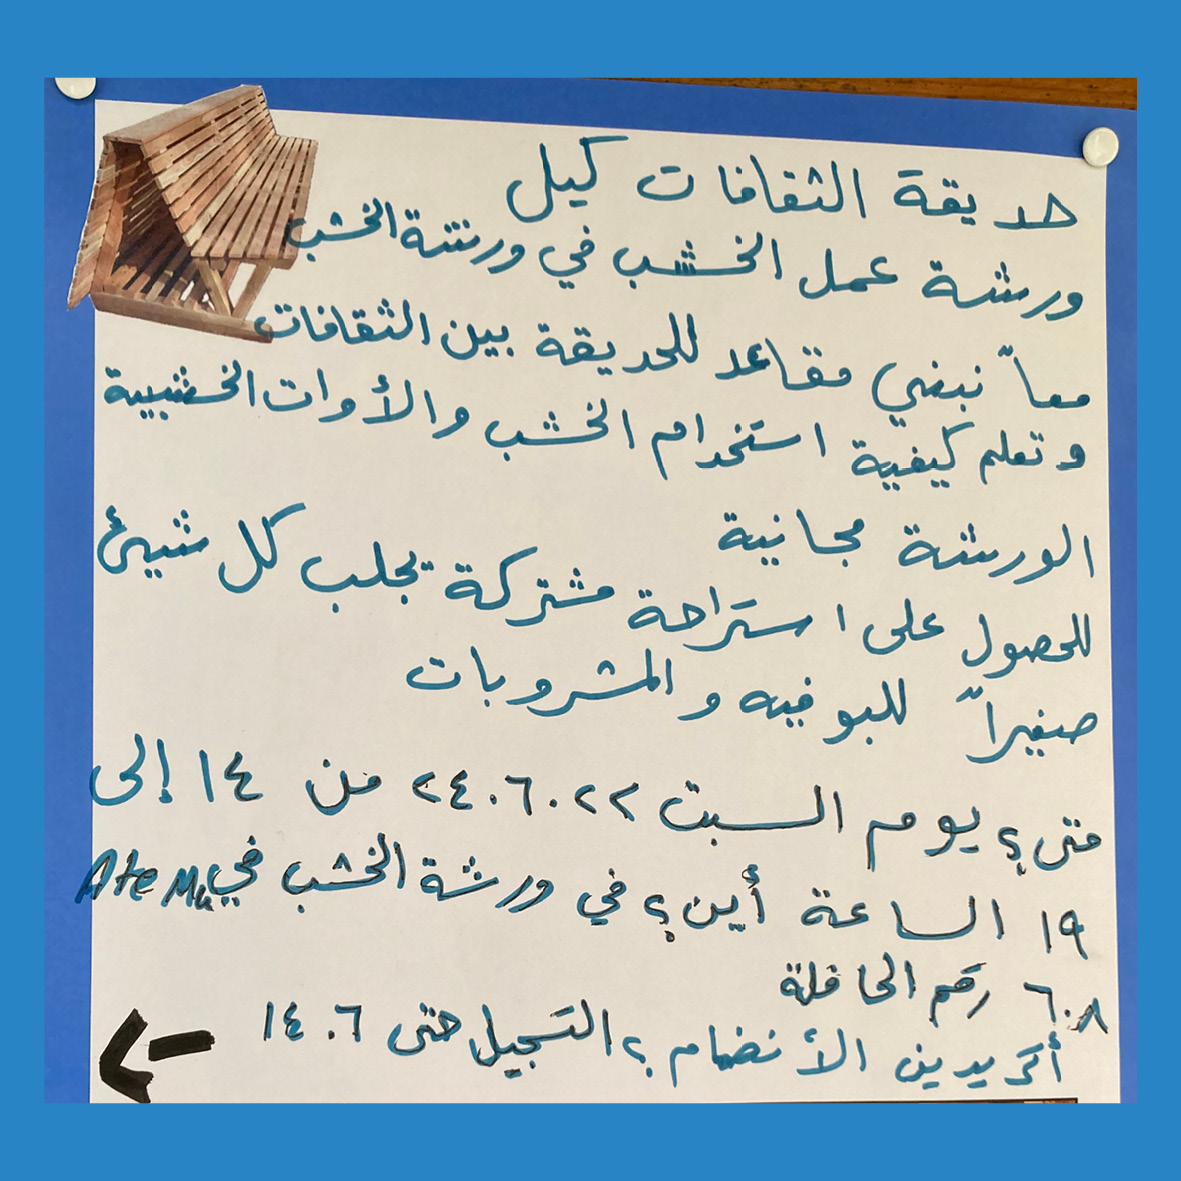 حديقة الثقافات كيل
ورشة عمل الخشب في ورشة الخشب
معاً نبني مقاعد للحديقة بين الثقافات
و تعلم كيفية استخدام الخشب والأوات الخشبية
الورشة مجانية
للحصول على استراحة مشتركة يجلب كل شيئ
صغيراً للبوفيه و المشروبات
متى؟ يوم السبت ٢٤.٦.٢٢ من ١٤ إلى
١٩ الساعة أين؟ في ورشة الخشب في Ate Mu
٦٠٨ رقم الحافلة
أتريدين الأنضمام؟ التسجيل حتى ١٤.٦